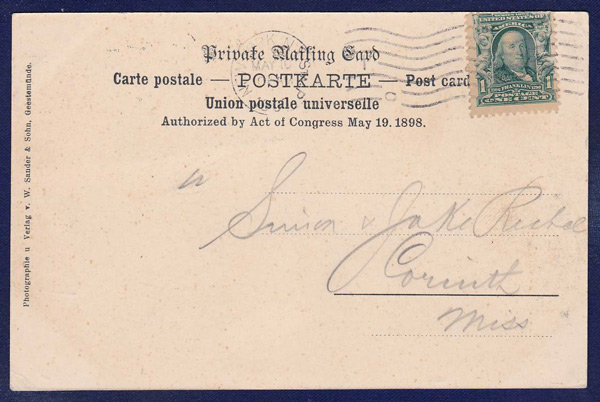 Private Mailing Card
Carte postale — POSTKARTE — Post card
Union postale universelle
Authorized by Act of Congress May 19. 1898.
UNITED STATES OF AMERICA
1 FRANKLIN 1
POSTAGE
ONE CENT
MAY
Simon & Jake
Corinth
Miss
Photographie u Verlag v. W. Sander & Sohn, Geestemünde.